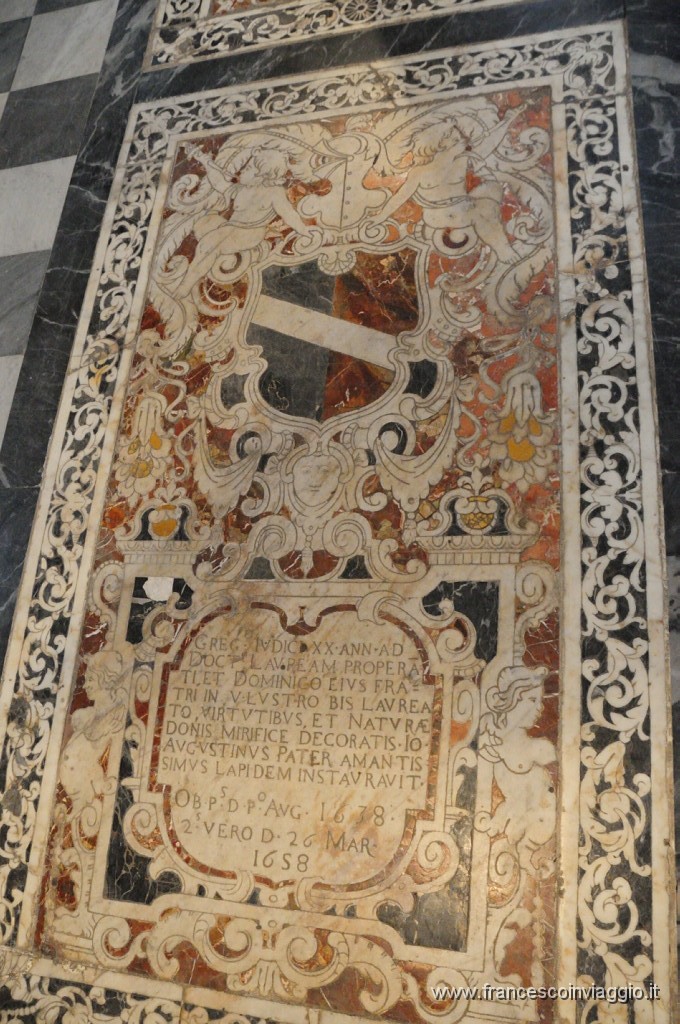 GREG · IVDICI XX · ANN · AD
DOCT · LAVREAM PROPERĀ
TI, ET DOMINICO EIVS FRA=
TRI IN · V · LVSTRO BIS LAVREA
TO, VIRTVTIBVS, ET NATVRÆ
DONIS MIRIFICE DECORATIS · IO ·
AVGVSTINVS PATER AMANTIS
SIMVS LAPIDEM INSTAVRAVIT ·
OB · Pˢ · D · Pº AVG · 1638 ·
2ˢ VERO D · 26 MAR ·
1658
www.francescoinviaggio.it